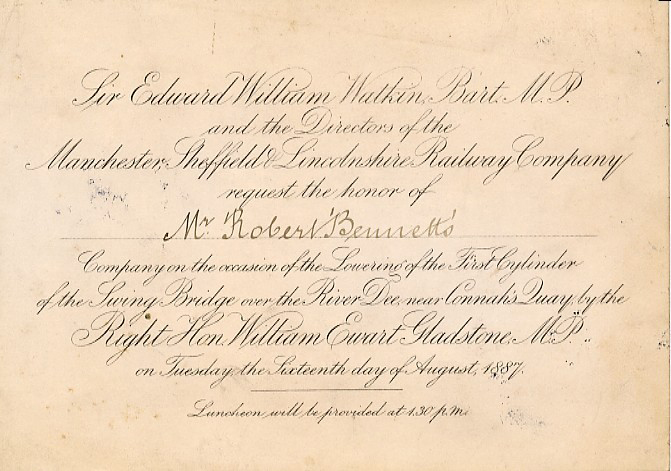 Sir Edward William Watkin, Bart. M.P.
and the Directors of the
Manchester, Sheffield & Lincolnshire Railway Company
request the honor of
Mr Robert Bennett's
Company on the occasion of the Lowering of the First Cylinder
of the Swing Bridge over the River Dee, near Connah's Quay, by the
Right Hon. William Ewart Gladstone, M.P.
on Tuesday, the Sixteenth day of August, 1887.
Luncheon will be provided at 1.30 p.m.